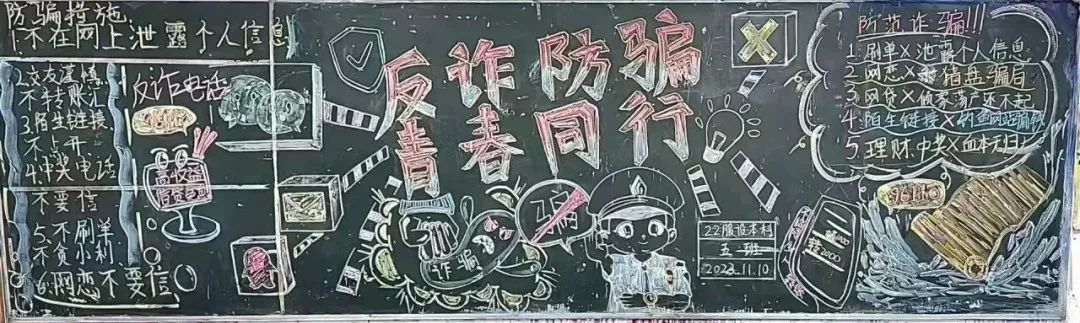 防骗措施:
1.不在网上泄露个人信息
2.交友谨慎
不转账汇
3.陌生链接
不点开
4.中奖电话
不要信
5.不刷单
不贪小利
6.网恋不要信
反诈电话
96110
高收益
反诈防骗
青春同行
诈骗
骗
22服设本科
五班
2023.11.10
防范诈骗!!!
1.刷单×泄露个人信息
2.网恋×杀猪盘骗局
3.网贷×倾家荡产还不起
4.陌生链接×钓鱼网站骗钱
5.理财中奖×血本无归
96110